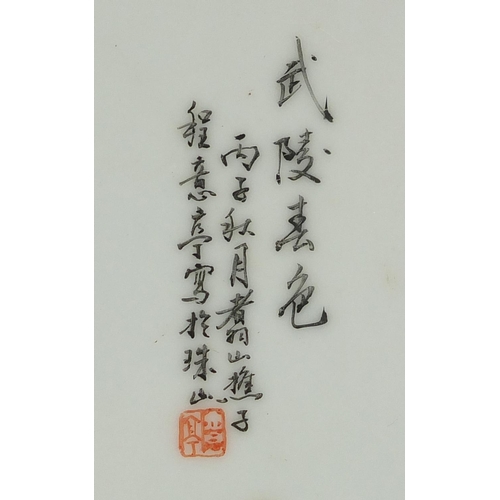 武陵春色
丙子秋月翥山樵子
程意亭寫於珠山
意亭